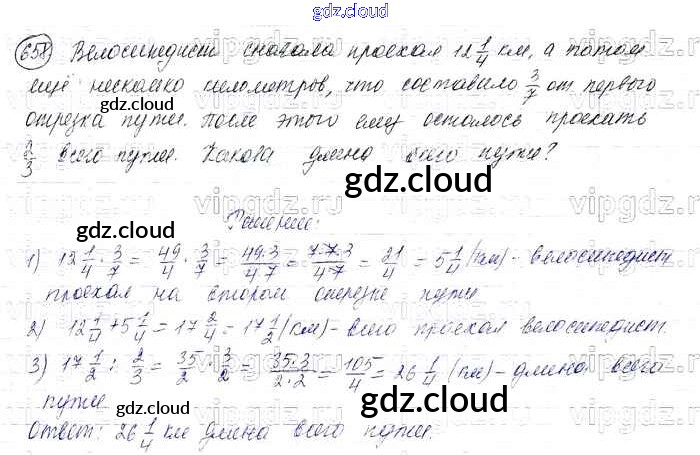 gdz.cloud
658) Велосипедист сначала проехал 12 1/4 км, а потом
ещё несколько километров, что составило 3/7 от первого
отрезка пути. После этого ему осталось проехать
2/3 всего пути. Какова длина всего пути?
gdz.cloud
gdz.cloud
gdz.cloud
Решение:
1) 12 1/4 · 3/7 = 49/4 · 3/7 = 49·3/4·7 = 7·7·3/4·7 = 21/4 = 5 1/4 (км) - велосипедист
проехал на втором отрезке пути
2) 12 1/4 + 5 1/4 = 17 2/4 = 17 1/2 (км) - всего проехал велосипедист.
3) 17 1/2 : 2/3 = 35/2 · 3/2 = 35·3/2·2 = 105/4 = 26 1/4 (км) - длина всего
пути
Ответ: 26 1/4 км длина всего пути.
gdz.cloud
gdz.cloud
gdz.cloud
vipgdz.ru